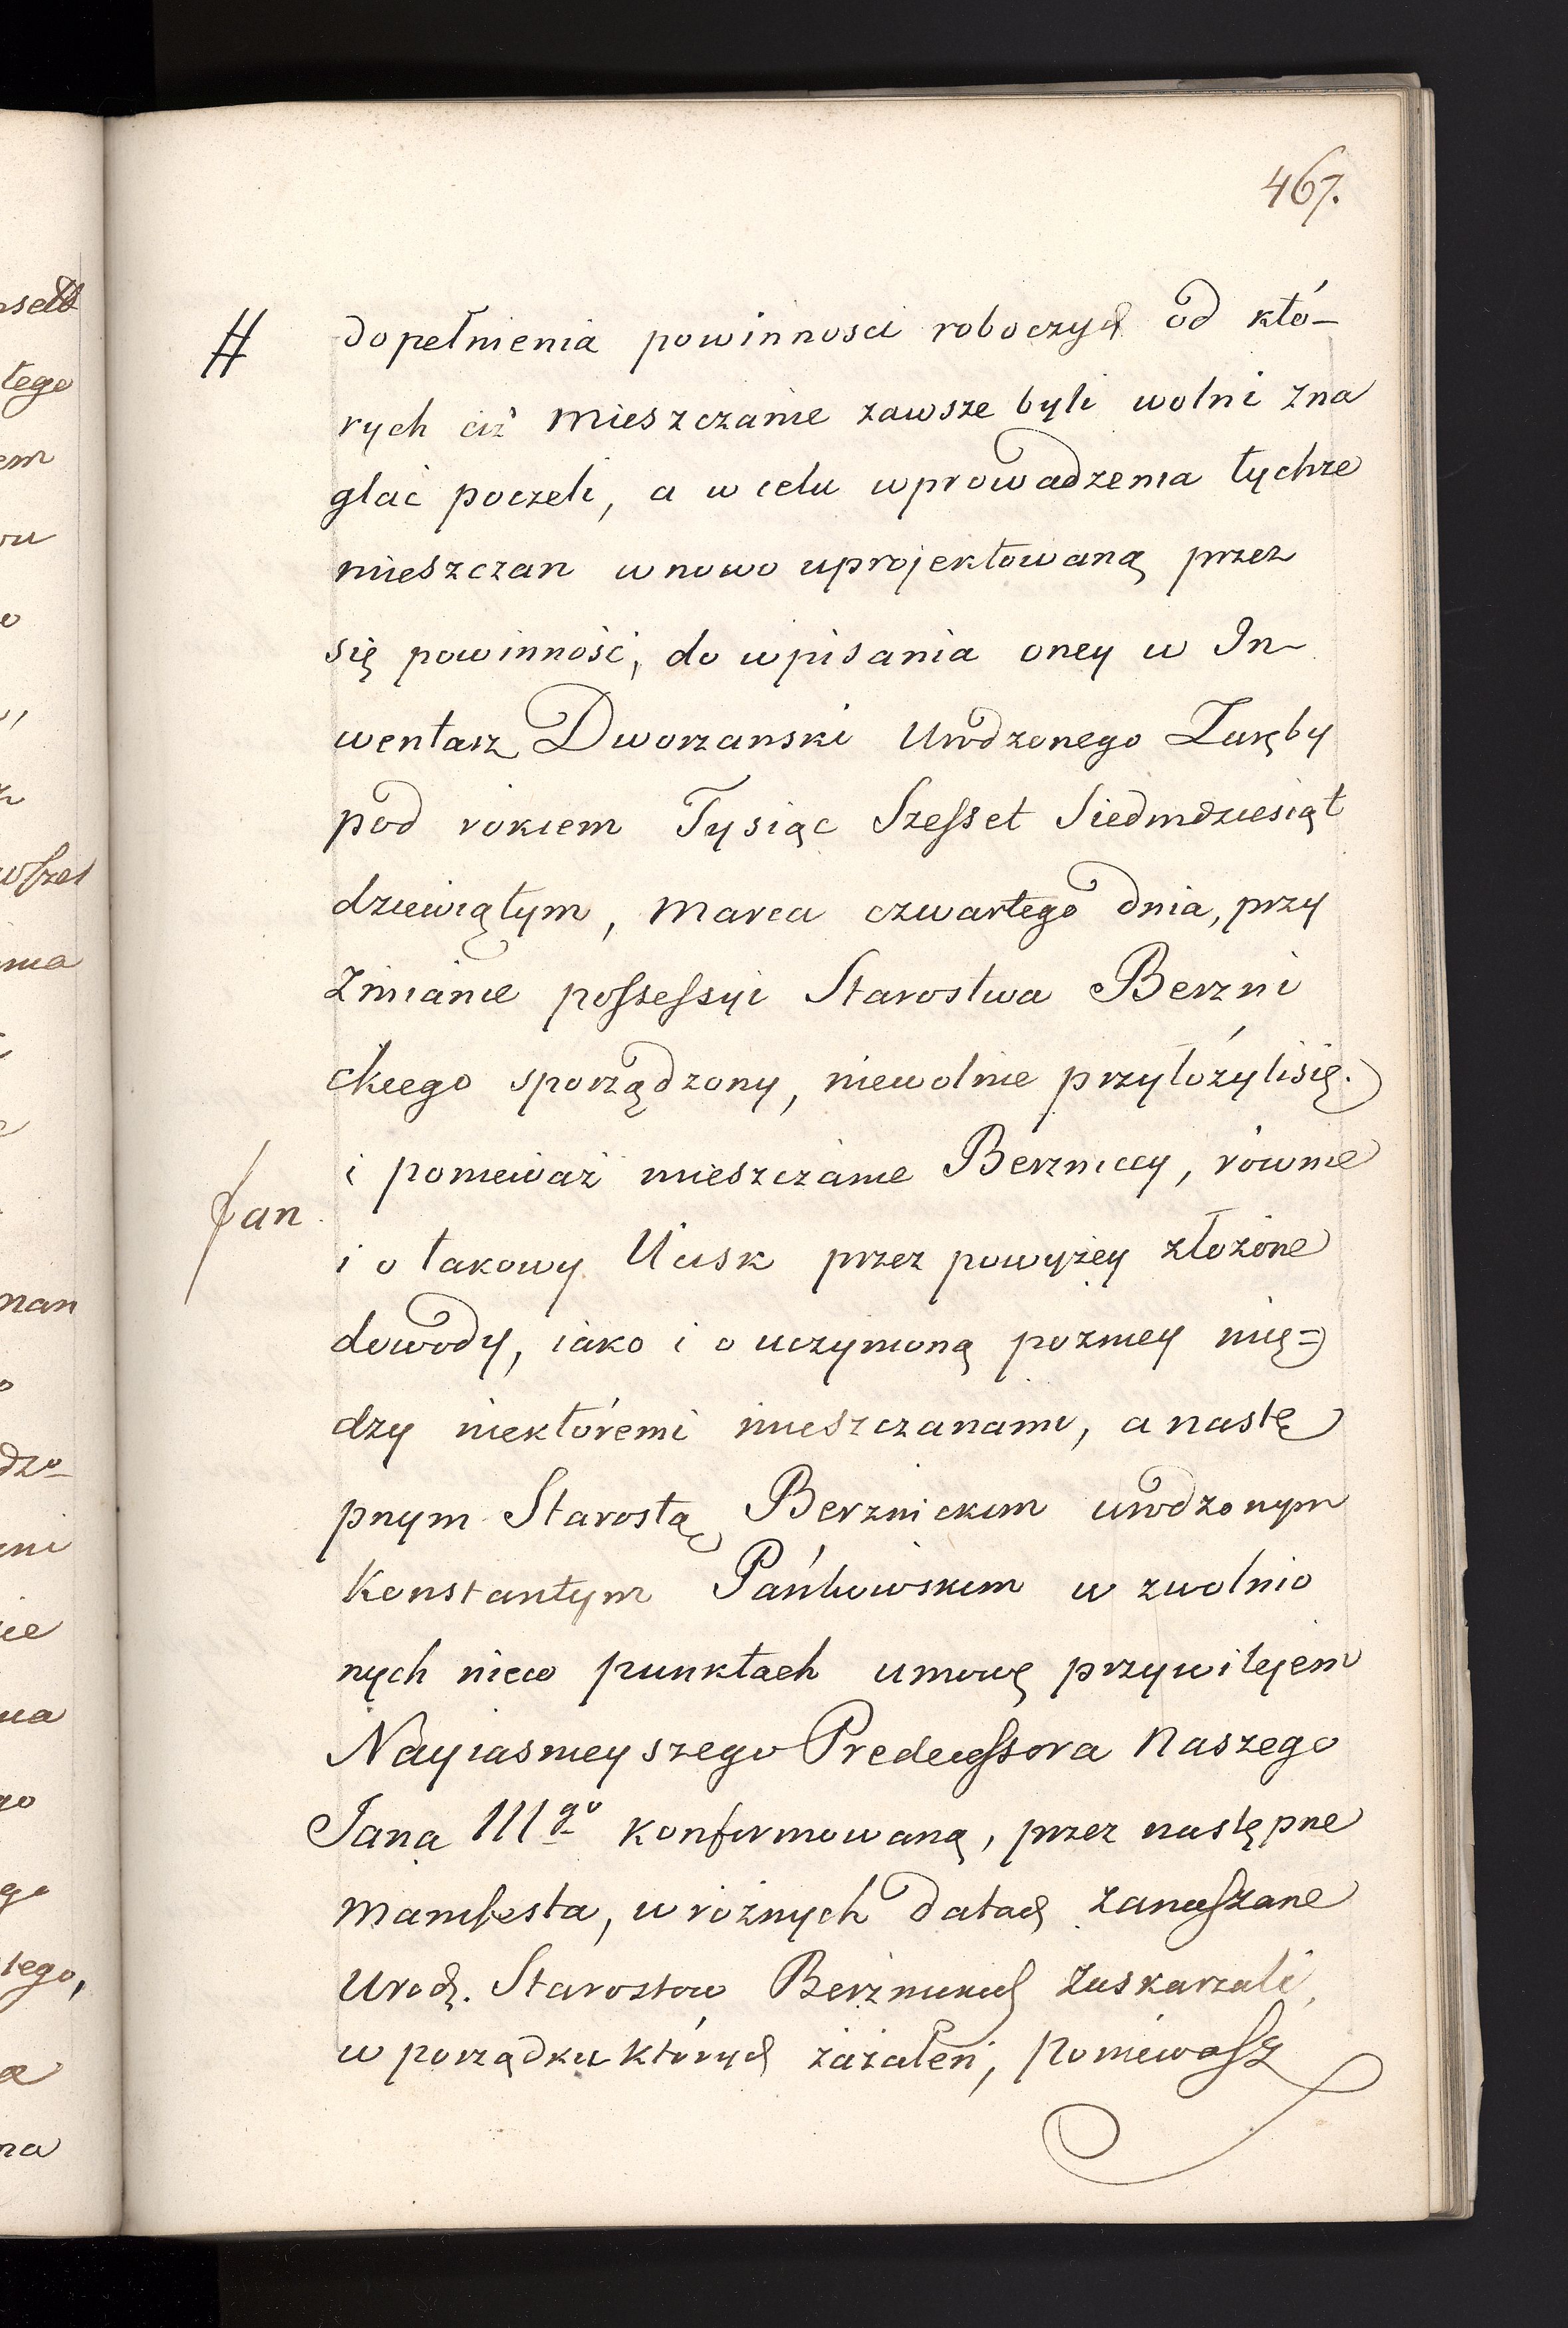 467.
dopełnienia powinnosci roboczych od któ-
rych ciż Mieszczanie zawsze byli wolni zna
glać poczeli, a w celu wprowadzenia tychże
mieszczan w nowo uprojektowaną przez
się powinność, do wpisania oney w In-
wentarz Dworzanski Urodzonego Zaręby
pod rokiem Tysiąc Szesset Siedmdziesiąt
dziewiątym, Marca czwartego dnia, przy
Zmianie possessyi Starostwa Berzni
ckiego sporządzony, niewolnie przyłożyli się.
i ponieważ mieszczanie Berzniccy, równie
Jan
i o takowy Ucisk przez powyżey złożone
dowody, iako i o uczynioną pozniey mię=
dzy niektóremi mieszczanami, a nastę
pnym Starostą Berznickim urodzonym
Konstantym Pańkowskim w zwolnio
nych nieco punktach umowę przywilejem
Nayiasnieyszego Predecessora Naszego
Jana III go konfirmowaną, przez następne
Manifesta, w rożnych datach zanaszane
Urodz. Starostow Berznickich zaskarzali,
w porządku których zażaleń, ponieważ